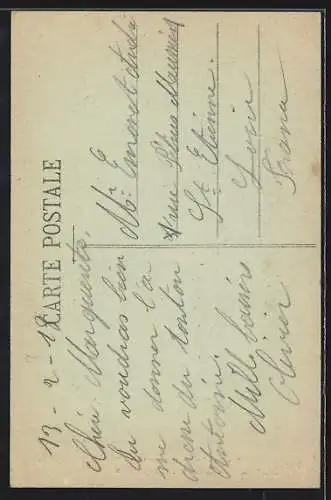 CARTE POSTALE
13 - 2 - 18
Chère Marguerite,
Tu voudras bien
me donner l'a
dresse du tonton
Antonin.
Mille baisers
Olivier
Mr Emonet
rue
St Etienne.
Loire
France